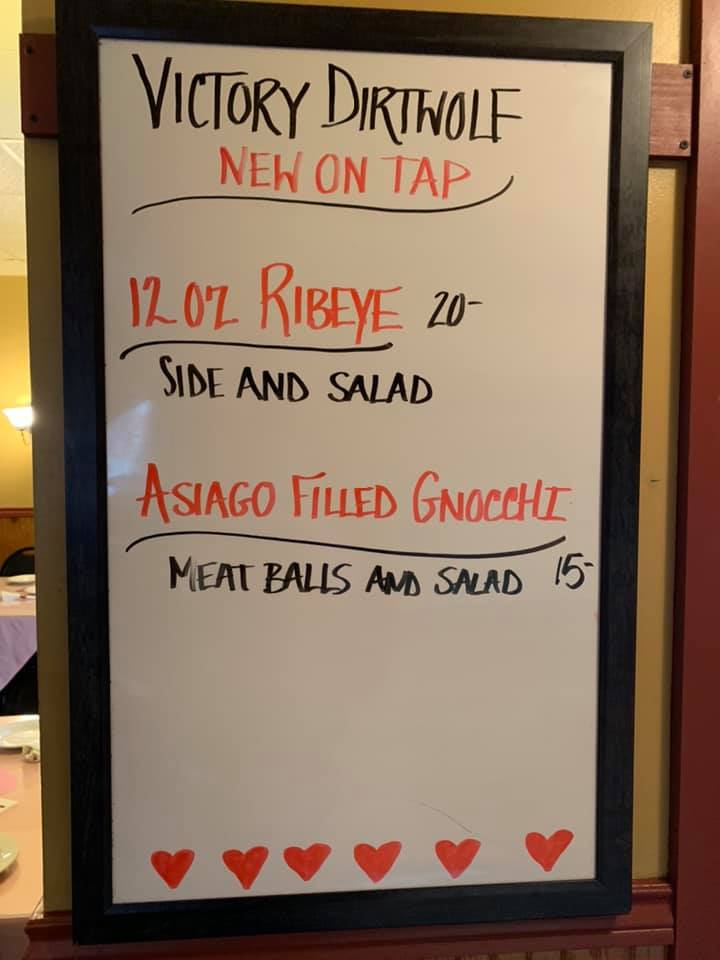 VICTORY DIRTWOLF
NEW ON TAP
12 OZ RIBEYE 20-
SIDE AND SALAD
ASIAGO FILLED GNOCCHI
MEAT BALLS AND SALAD 15-